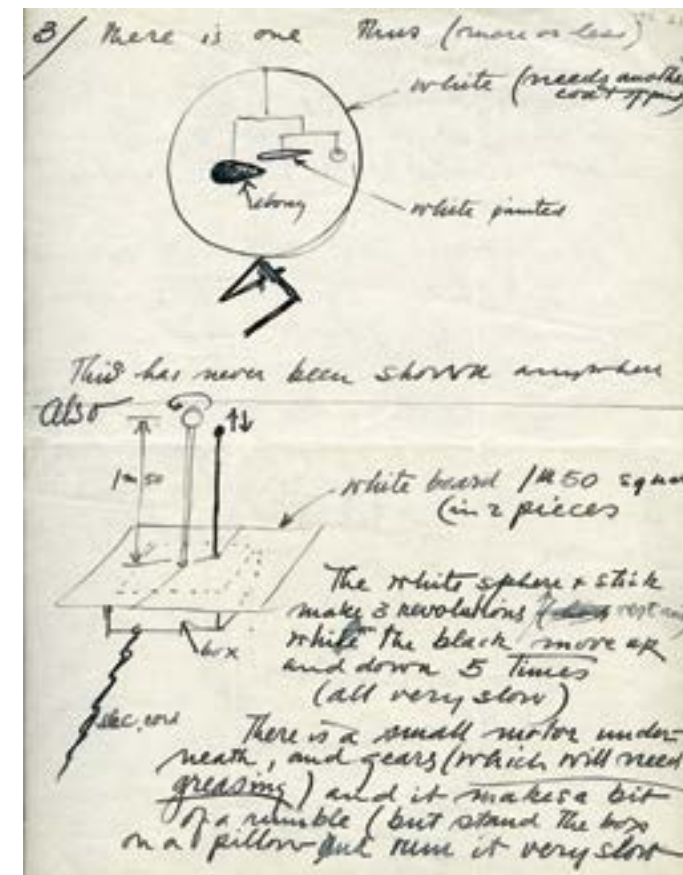 3/ There is one thus (more or less)
white (needs another
coat of
ebony
white painted
This has never been shown anywhere
also
1m50
white board 1m50 squa
(in 2 pieces
box
elec. cord
The white sphere + stick
make 3 revolutions
while the black move up
and down 5 times
(all very slow)
There is a small motor under-
neath, and gears (which will need
greasing) and it makes a bit
of a rumble (but stand the box
on a pillow and run it very slow